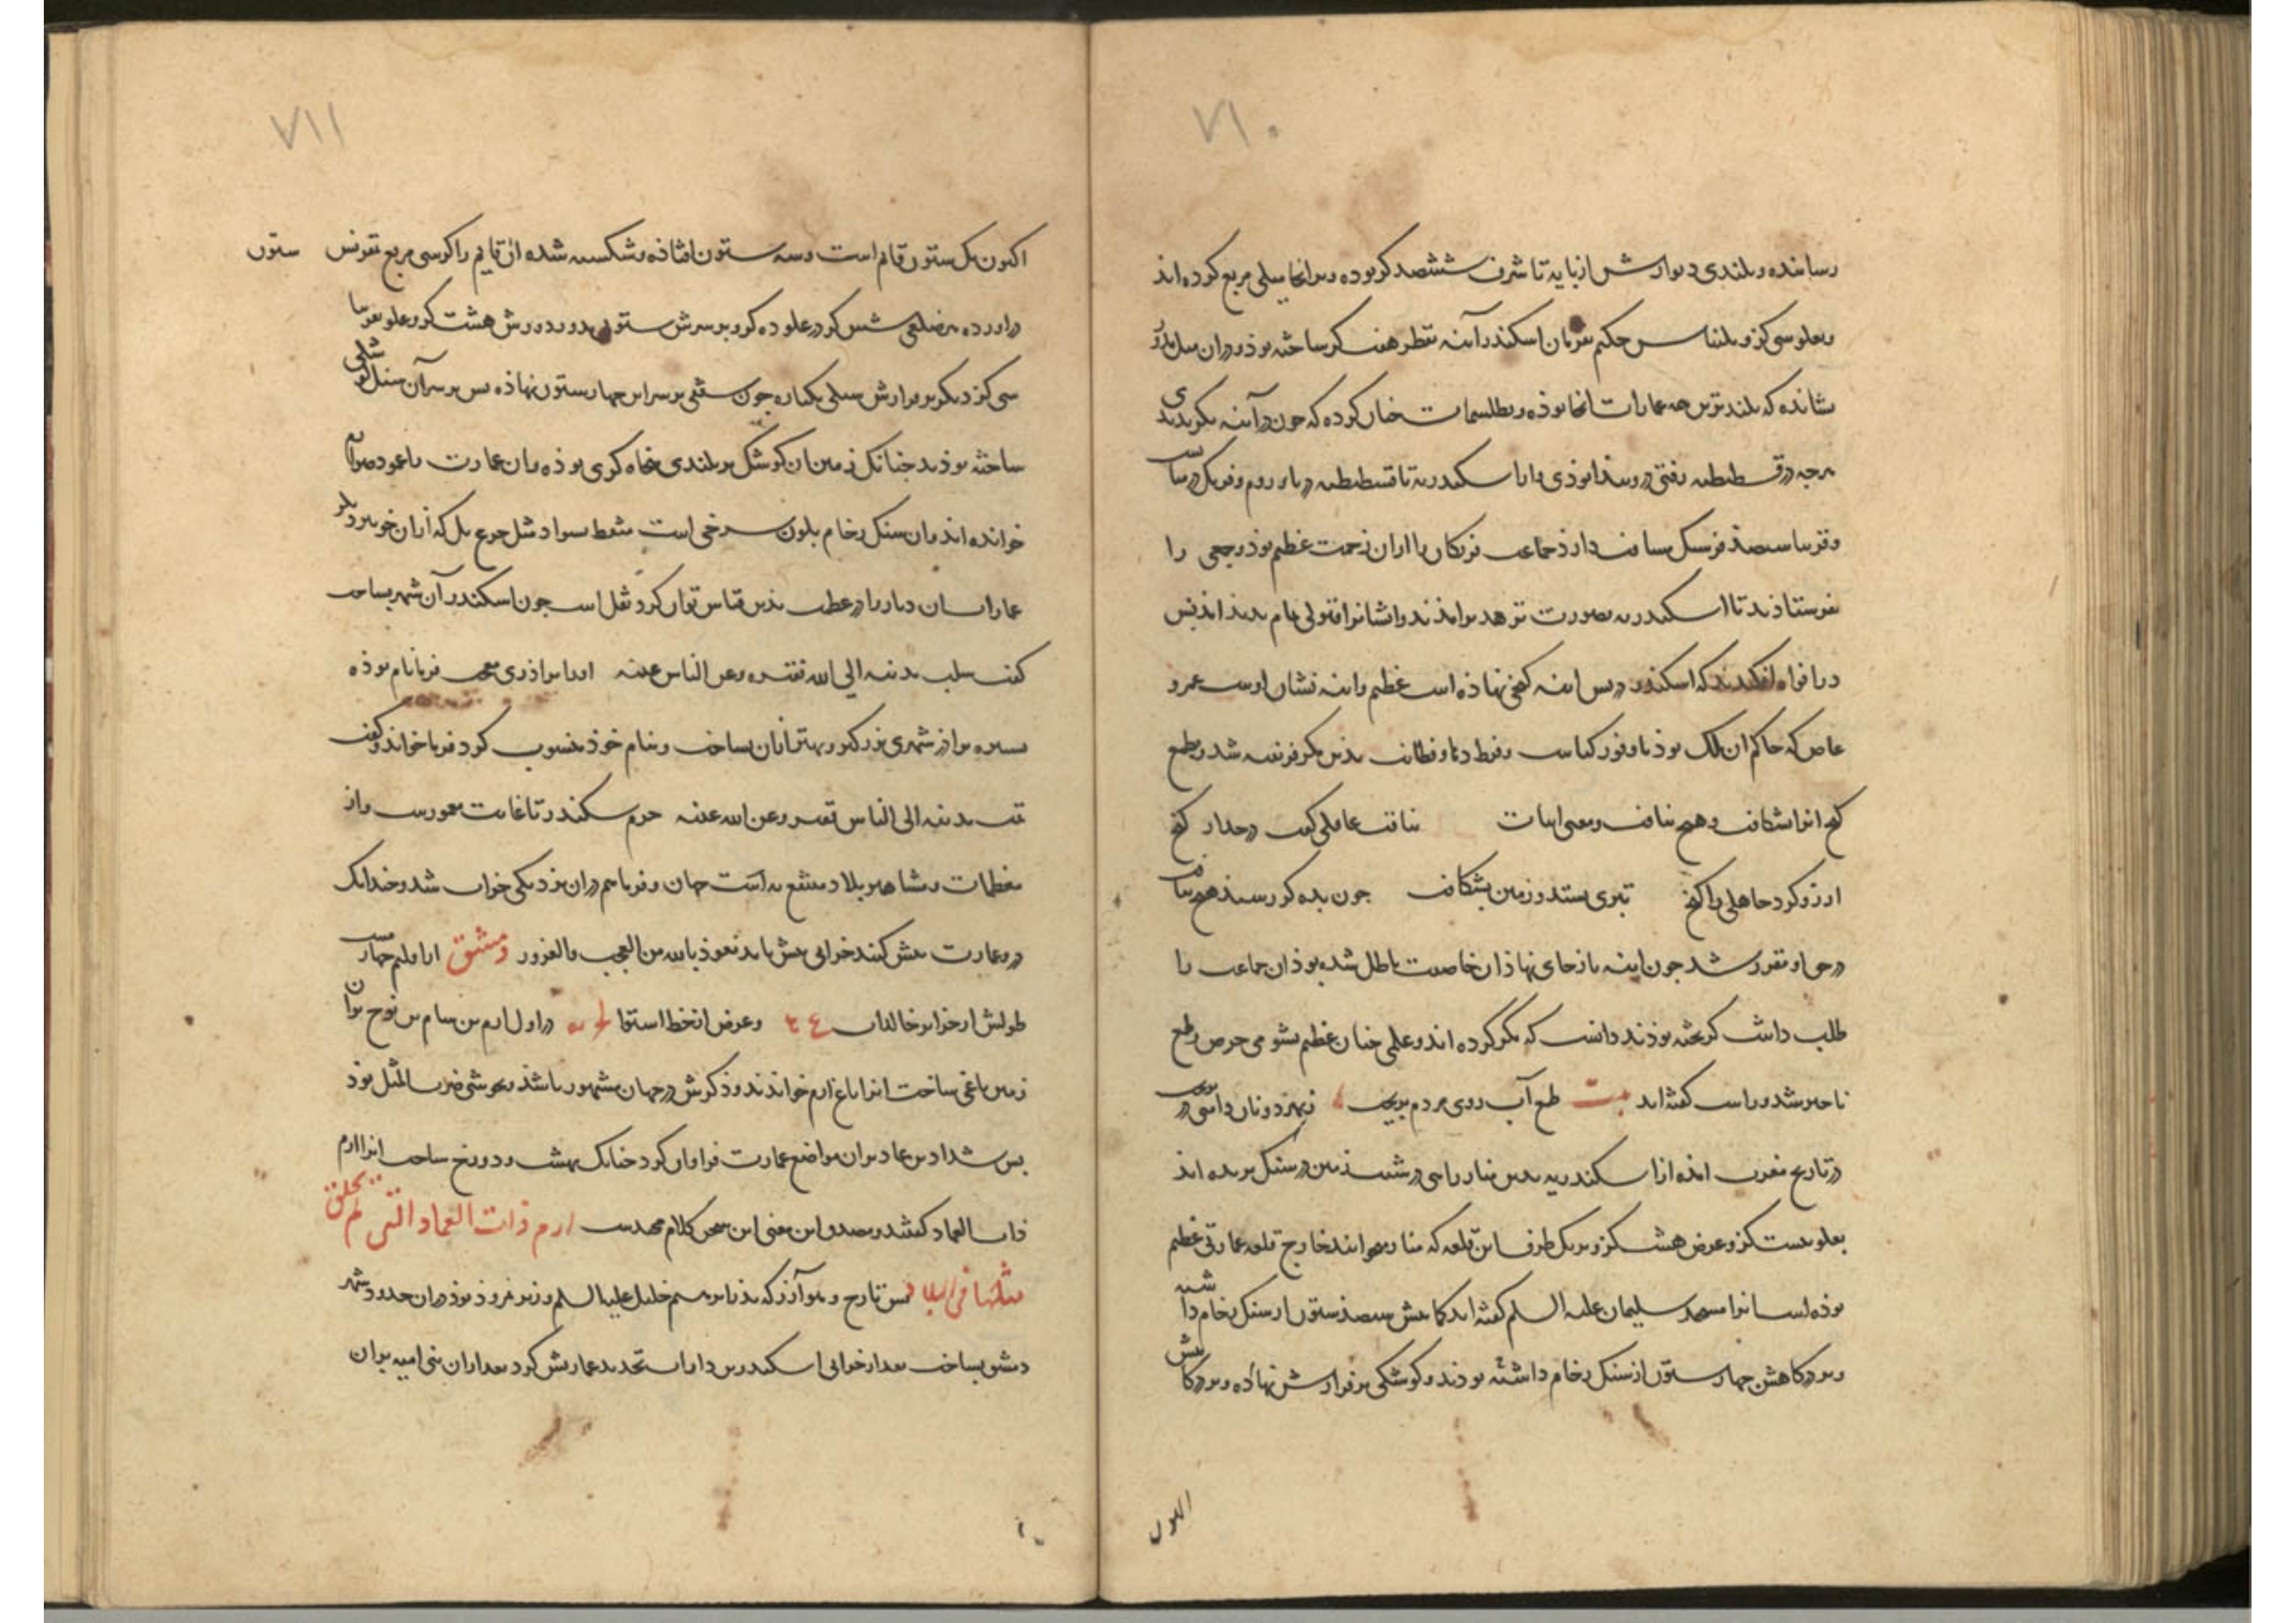 ۷۱۰
رسانیده و بلندی دیوارش از پایه تا شرف ششصد گز بوده و بر آنجا میلی مربع کرده‌اند
و بعلو سی گز و بلیناس حکیم بفرمان اسکندر آینه بقطر هفت گز ساخته بوذ و در آن میل بدر
نشانده که بلندترین همه عمارات آنجا بوذه و بطلسمات چنان کرده که چون در آینه نگریدندی
هرچه در قسطنطنیه رفتی درو پیدا بوذی و از اسکندریه تا قسطنطنیه دریای روم و فرنگ در میانست
و قریب سیصد فرسنگ مسافت دارد جماعت فرنگان را از آن زحمت عظیم بوذ و جمعی را
بفرستادند تا اسکندریه بصورت تزهد برآمدند و ایشانرا قبولی تمام پدید آمد پس
در افواه افکندند که اسکندر در پس آینه گنجی نهاذه است عظیم و آینه نشان اوست عمرو
عاص که حاکم آن ملک بوذ با وفور کیاست و فرط دها و فطانت بدین مکر فریفته شد و بطمع
گنج آنرا بشکافت و هیچ نیافت و معنی ابیات نیافت عاقلی گفت در جدار گنج
آرزو کرد جاهلی را گنج تبری بستد و زمین بشکافت چون بده گز رسید هیچ نیافت
در حق او مقرر شد چون آینه باز جای نهاذ آن خاصیت باطل شده بوذ آن جماعت را
طلب داشت گریخته بوذند دانست که مکر کرده‌اند و علمی چنان عظیم بشومی حرص و طمع
ناچیز شد و راست گفته‌اند بیت طمع آب روی مردم بریخت
در تاریخ مغرب آمده از اسکندریه بدین منار راهی در شیب زمین در سنگ بریده‌اند
بعلو بیست گز و عرض هشت گز و بر یک طرف این قلعه که منار میخوانند خارج قلعه عمارتی عظیم
بوذه است آنرا مسجد سلیمان علیه السلم گفته‌اند کمابیش سیصد ستون از سنگ رخام داشته
و بر درگاهش چهار ستون از سنگ رخام داشته بودند و کوشکی بر فرازش نهاده و بر درگاهش
اکنون
۷۱۱
اکنون یک ستون قایم است و سه ستون افتاذه و شکسته شده آن قایم را کرسی مربع ستون
در آورده هر ضلعی شش گز در علو ده گز و بر سرش ستون مدور دورش هشت گز و علو
سی گز دیگر بر فرازش سنگی یکپاره چون سقفی بر سر این چهار ستون نهاذه پس بر سر آن سنگ کوشکی
ساخته بوذند چنانک زمین آن کوشک بر بلندی پنجاه گزی بوذه و آن عمارت را عمود
خوانده‌اند و آن سنگ رخام بلون سرخی است منقط بسواد مثل جزع بل که از آن خوبتر دیگر
عمارات آن دیار را در عظمت بدین قیاس توان کرد نقل است چون اسکندر آن شهر بساخت
گفت بنیت مدینه الی الله فقیره و عن الناس غنیه او را براذری بوذ فرما نام بوذه
بستیزه براذر شهری بزرگتر و بهتر از آن بساخت و بنام خوذ منسوب کرد فرما خواند و گفت
بنیت مدینه الی الناس فقیره و عن الله غنیه جرم اسکندریه تا غایت معمورست و از
معظمات و مشاهیر بلاد منتفع به است جهان و فرما هم در آن نزدیکی خراب شد و چندانک
درو عمارت بیش کنند خرابی بیش یابد نعوذ بالله من العجب و الغرور دمشق از اقلیم چهارمست
طولش از جزایر خالدات و عرض از خط استوا در اول ارم بن سام بن نوح بر آن
زمین باغی ساخت آنرا باغ ارم خواندند و ذکرش در جهان مشهور باشذ و بخوشی ضرب المثل بوذ
پس شداد بن عاد بر آن مواضع عمارت فراوان کرد چنانک بهشت و دوزخ ساخت آنرا ارم
ذات العماد گفتند و مصدق این معنی این سخن کلام مجیدست ارم ذات العماد التی لم یخلق
مثلها فی البلاد پس تارح و هو آزر که پدر ابرهیم خلیل علیه السلم و وزیر نمروذ بوذ در آن حدود شهر
دمشق بساخت بعد از خرابی اسکندر بن داراب تجدید عمارتش کرد بعد از آن بنی امیه بر آن